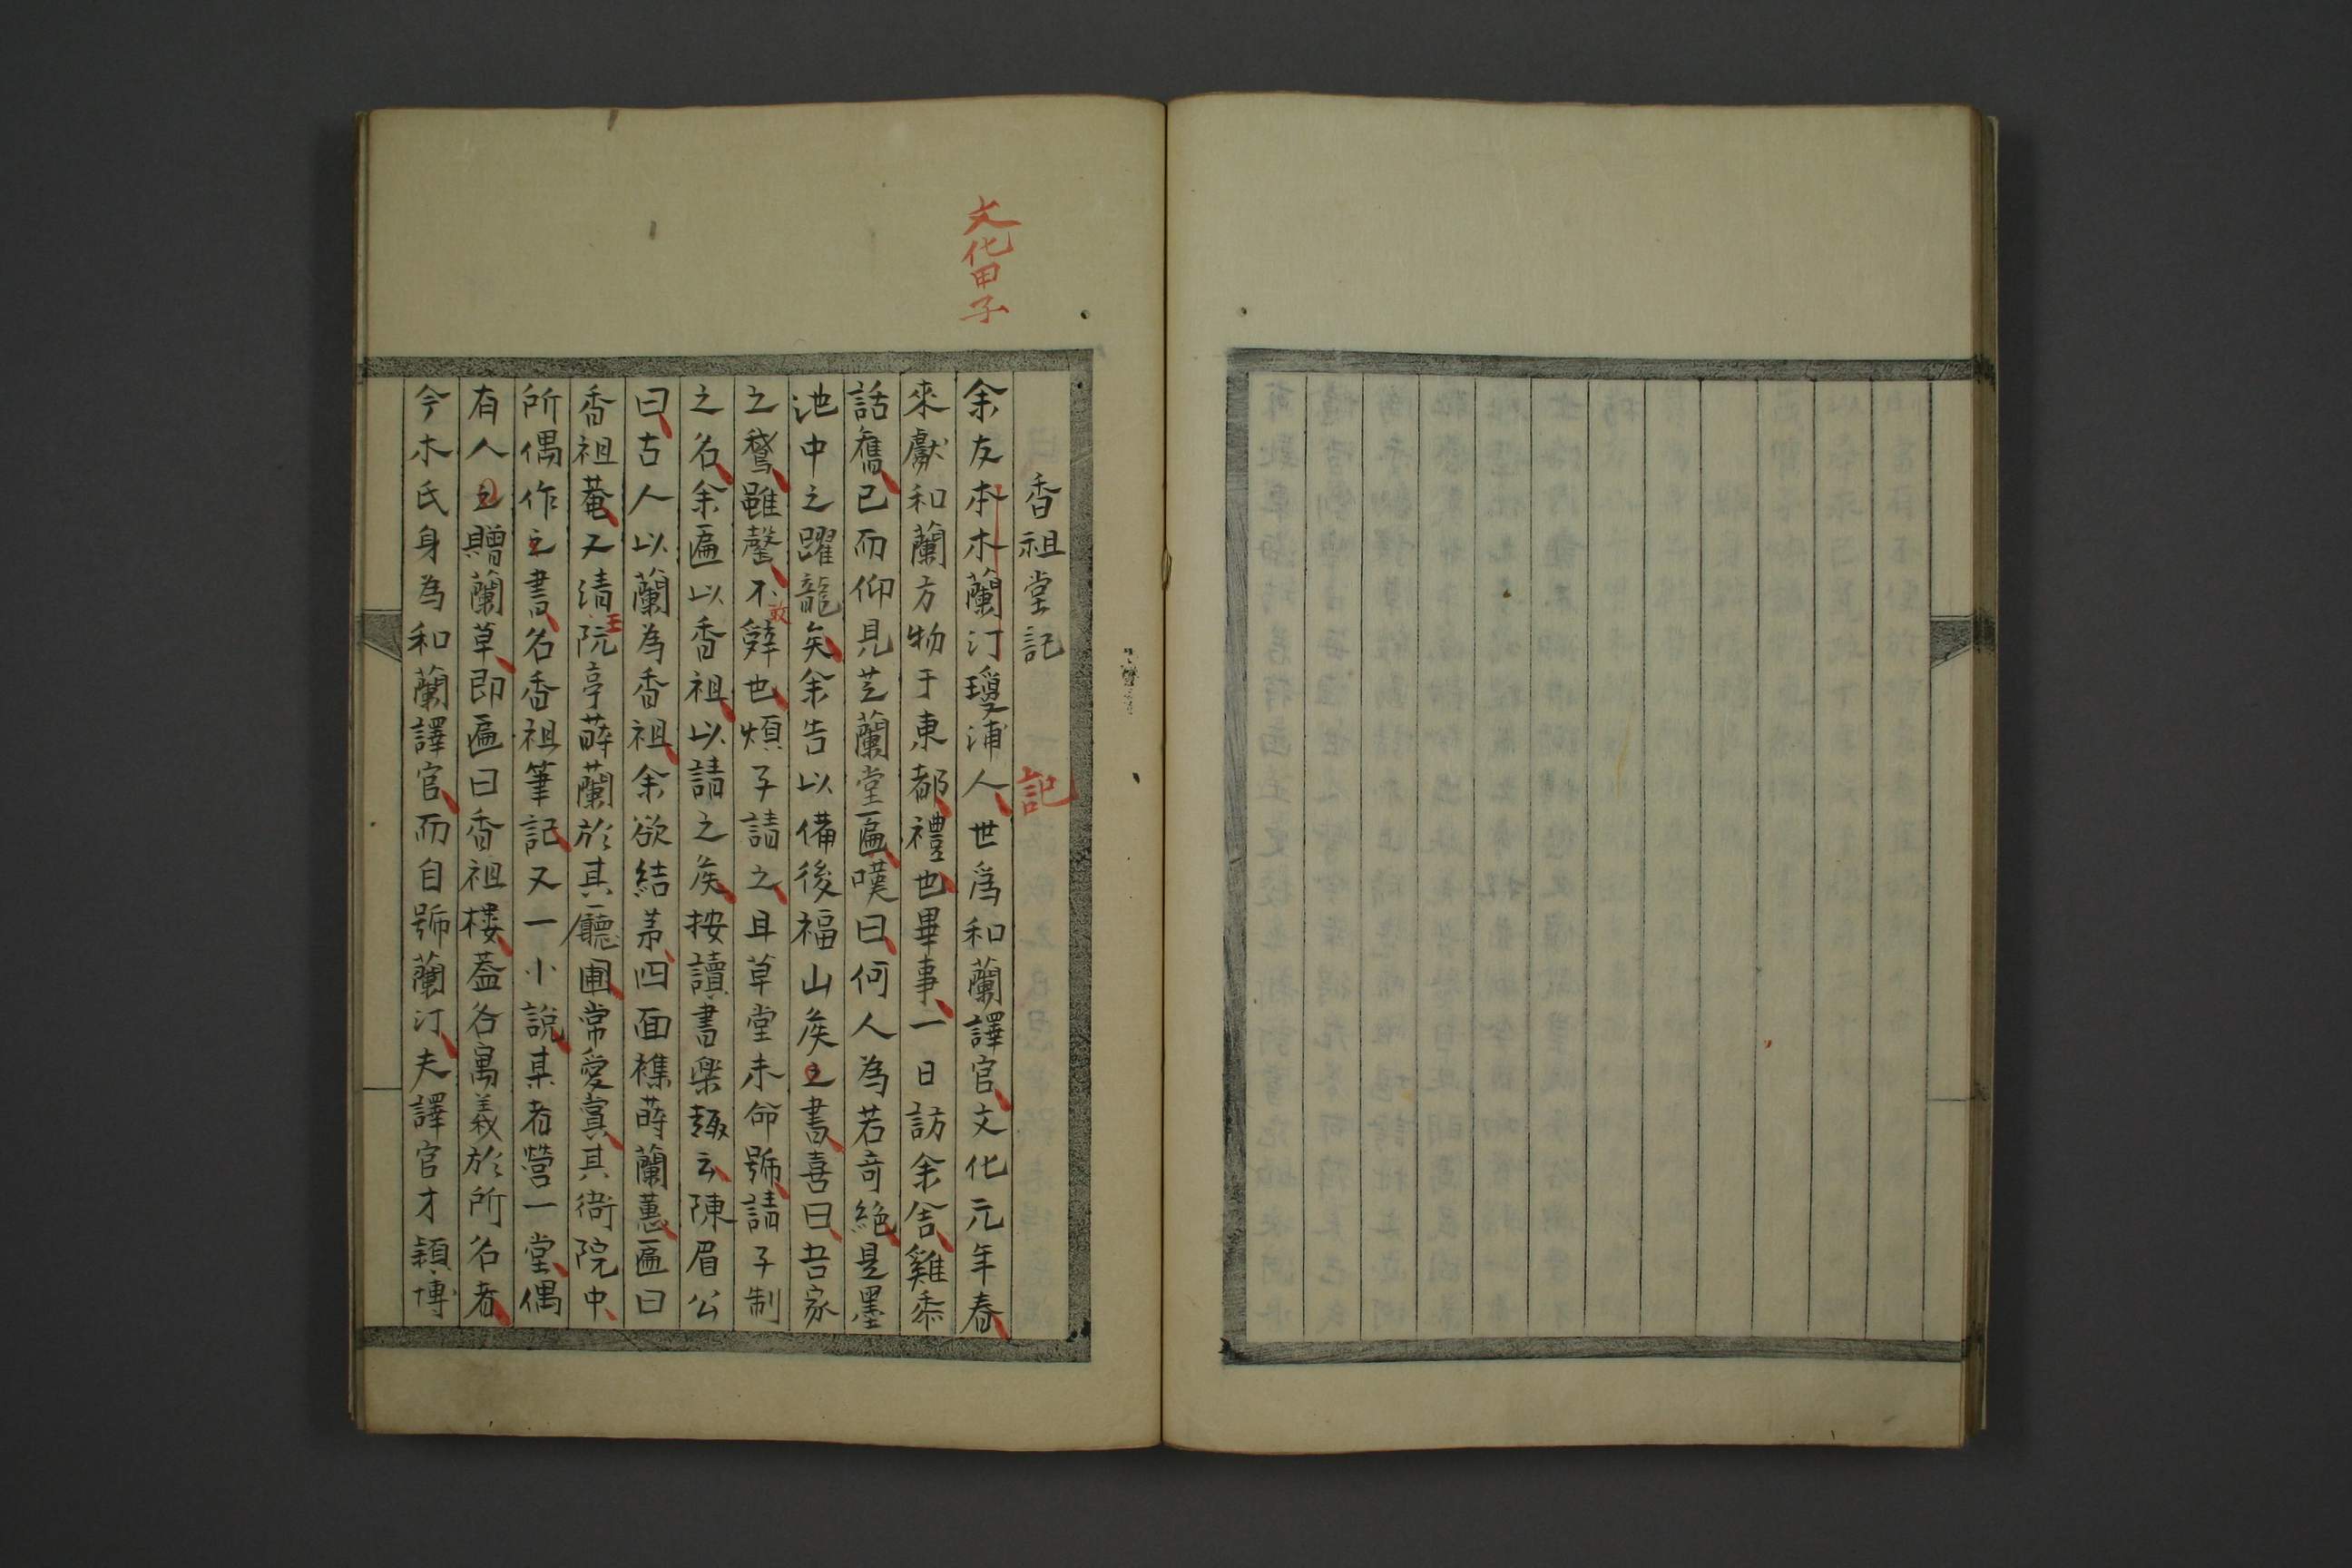 文化甲子
香祖堂記 記
余友本木蘭汀瓊浦人世爲和蘭譯官文化元年春
來獻和蘭方物于東都禮也畢事一日訪余舍雞黍
話舊已而仰見芝蘭堂匾嘆曰何人為若奇絶是墨
池中之躍龍矣余告以備後福山侯之書喜曰吾家
之鵞雖馨不敢辭也煩子請之且草堂未命號請子制
之名余匾以香祖以請之侯按讀書樂趣云陳眉公
曰古人以蘭為香祖余欲結茅四面襍蒔蘭蕙匾曰
香祖菴又清王阮亭蒔蘭於其廳圃常愛賞其衙院中
所偶作之書名香祖筆記又一小說某者營一堂偶
有人之贈蘭草即匾曰香祖樓蓋各寓義於所名者
今木氏身為和蘭譯官而自號蘭汀夫譯官才穎博